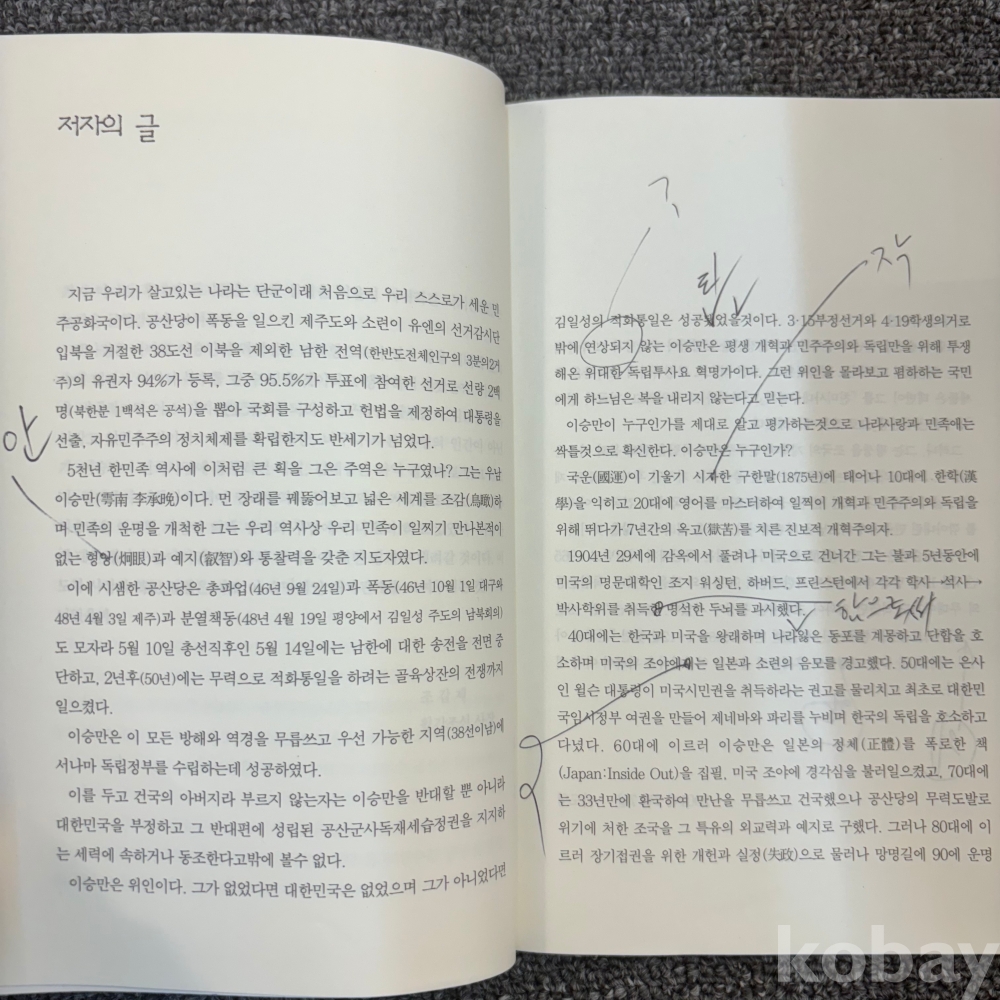 저자의 글
지금 우리가 살고있는 나라는 단군이래 처음으로 우리 스스로가 세운 민
주공화국이다. 공산당이 폭동을 일으킨 제주도와 소련이 유엔의 선거감시단
입북을 거절한 38도선 이북을 제외한 남한 전역(한반도전체인구의 3분의2거
주)의 유권자 94%가 등록, 그중 95.5%가 투표에 참여한 선거로 선량 2백
명(북한분 1백석은 공석)을 뽑아 국회를 구성하고 헌법을 제정하여 대통령을
선출, 자유민주주의 정치체제를 확립한지도 반세기가 넘었다.
안
5천년 한민족 역사에 이처럼 큰 획을 그은 주역은 누구였나? 그는 우남
이승만(雩南 李承晩)이다. 먼 장래를 꿰뚫어보고 넓은 세계를 조감(鳥瞰)하
며 민족의 운명을 개척한 그는 우리 역사상 우리 민족이 일찍기 만나본적이
없는 형앙(炯眼)과 예지(叡智)와 통찰력을 갖춘 지도자였다.
이에 시샘한 공산당은 총파업(46년 9월 24일)과 폭동(46년 10월 1일 대구와
48년 4월 3일 제주)과 분열책동(48년 4월 19일 평양에서 김일성 주도의 남북회의)
도 모자라 5월 10일 총선직후인 5월 14일에는 남한에 대한 송전을 전면 중
단하고, 2년후(50년)에는 무력으로 적화통일을 하려는 골육상잔의 전쟁까지
일으켰다.
이승만은 이 모든 방해와 역경을 무릅쓰고 우선 가능한 지역(38선이남)에
서나마 독립정부를 수립하는데 성공하였다.
이를 두고 건국의 아버지라 부르지 않는자는 이승만을 반대할 뿐 아니라
대한민국을 부정하고 그 반대편에 성립된 공산군사독재세습정권을 지지하
는 세력에 속하거나 동조한다고밖에 볼수 없다.
이승만은 위인이다. 그가 없었다면 대한민국은 없었으며 그가 아니었다면
탑
작
김일성의 적화통일은 성공되었을것이다. 3·15부정선거와 4·19학생의거로
밖에 연상되지 않는 이승만은 평생 개혁과 민주주의와 독립만을 위해 투쟁
해온 위대한 독립투사요 혁명가이다. 그런 위인을 몰라보고 폄하하는 국민
에게 하느님은 복을 내리지 않는다고 믿는다.
이승만이 누구인가를 제대로 알고 평가하는것으로 나라사랑과 민족애는
싹틀것으로 확신한다. 이승만은 누구인가?
국운(國運)이 기울기 시자한 구한말(1875년)에 태어나 10대에 한학(漢
學)을 익히고 20대에 영어를 마스터하여 일찍이 개혁과 민주주의와 독립을
위해 뛰다가 7년간의 옥고(獄苦)를 치른 진보적 개혁주의자.
1904년 29세에 감옥에서 풀려나 미국으로 건너간 그는 불과 5년동안에
미국의 명문대학인 조지 워싱턴, 하버드, 프린스턴에서 각각 학사→석사→
박사학위를 취득 명석한 두뇌를 과시했다.
함으로써
40대에는 한국과 미국을 왕래하며 나라잃은 동포를 계몽하고 단합을 호
소하며 미국의 조야에 는 일본과 소련의 음모를 경고했다. 50대에는 은사
인 윌슨 대통령이 미국시민권을 취득하라는 권고를 물리치고 최초로 대한민
국임시정부 여권을 만들어 제네바와 파리를 누비며 한국의 독립을 호소하고
다녔다. 60대에 이르러 이승만은 일본의 정체(正體)를 폭로한 책
(Japan:Inside Out)을 집필, 미국 조야에 경각심을 불러일으켰고, 70대에
는 33년만에 환국하여 만난을 무릅쓰고 건국했으나 공산당의 무력도발로
위기에 처한 조국을 그 특유의 외교력과 예지로 구했다. 그러나 80대에 이
르러 장기접권을 위한 개헌과 실정(失政)으로 물러나 망명길에 90에 운명
kobay